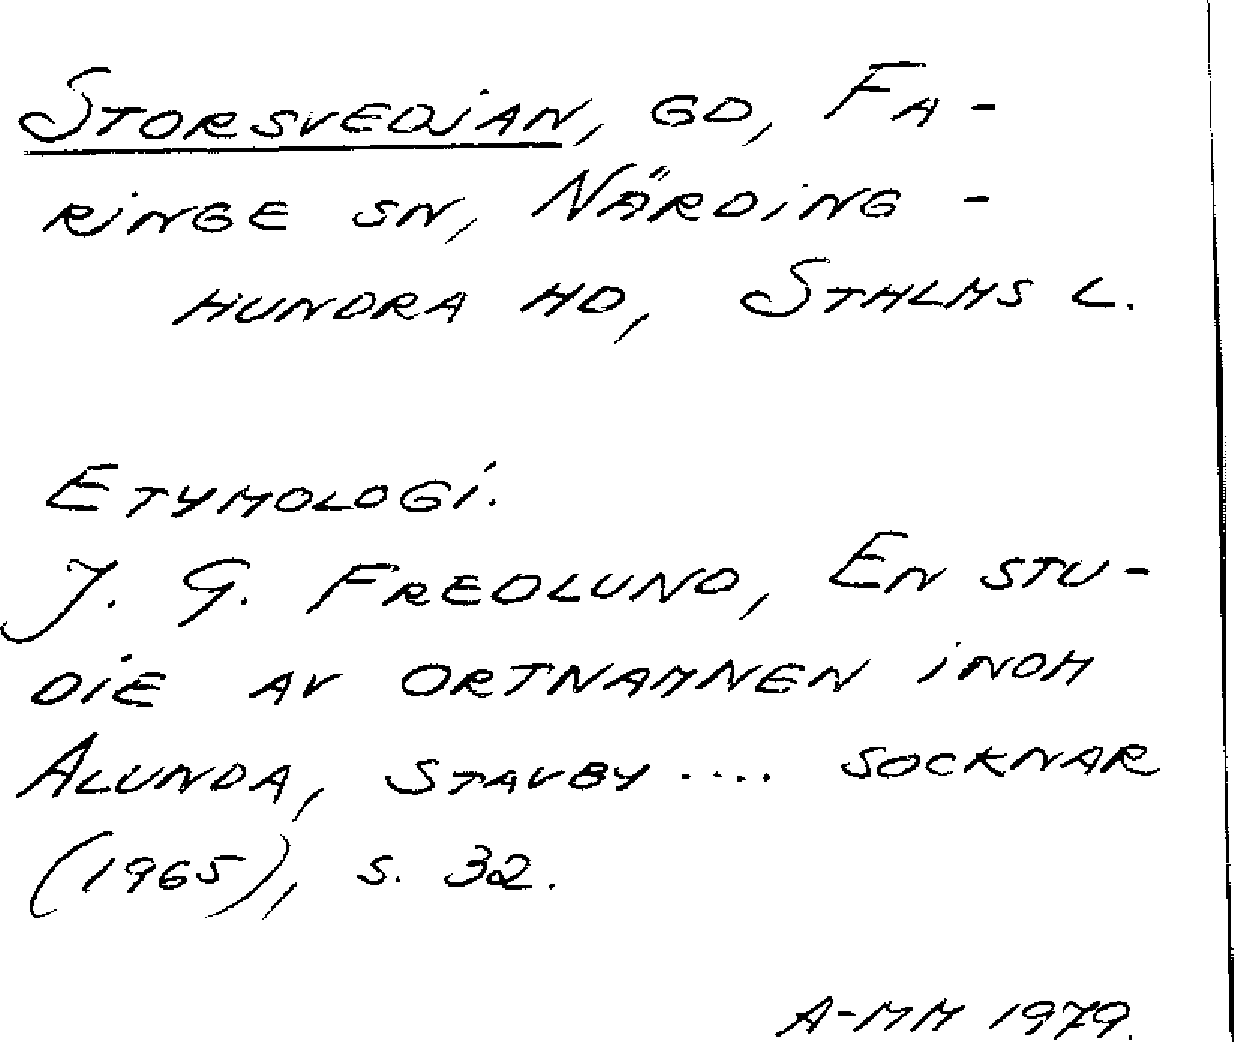 Storsvedjan, gd, Fa-
ringe sn, Närding-
hundra hd, Sthlms l.
Etymologi.
J. G. Fredlund, En stu-
die av ortnamnen inom
Alunda, Stavby .... socknar
(1965), s. 32.
A-MM 1979.